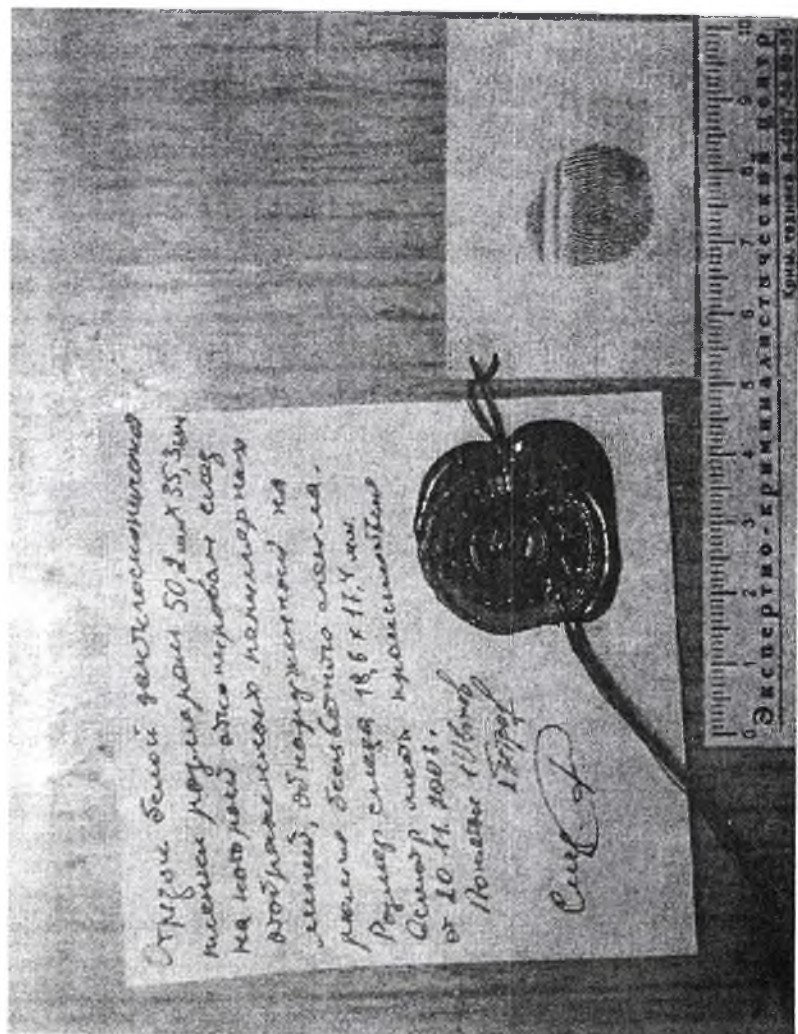 Отрезок белой дактилоскопической
пленки размером 50,2 мм х 35,3 мм
на которой откопирован след
с отображением папиллярных
линий, обнаруженный на
бесцветного стекла.
Размер следа 18,6 х 17,4 мм.
Осмотр места происшествия
от 20.11.2003г.
Понятые 1)
2)
0 1 2 3 4 5 6 7 8 9 10
Экспертно-криминалистический центр
Крим. техника